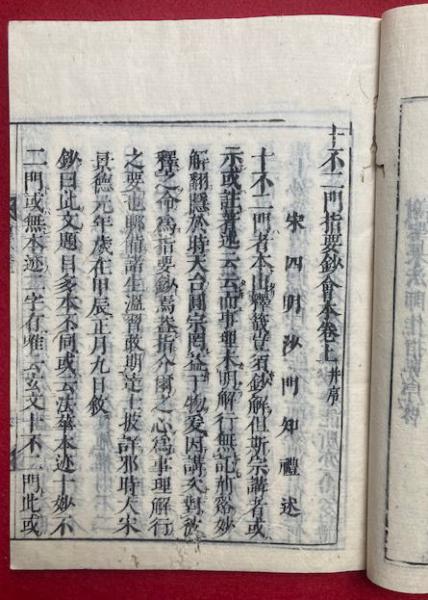 十不二門指要鈔會本卷上 并序
宋四明沙門知禮述
十不二門者本出釋籤豈須鈔解但斯宗講者或
示或註著述云云而事理未明解行無託荊谿妙
解翻隱於時天台圓宗罔益于物爰因講次對彼
釋之命為指要鈔焉蓋指介爾之心為事理解行
之要也聊備諸生溫習敢期達士披詳邪時大宋
景德元年歲在甲辰正月九日敘
鈔曰此文題目多本不同或云法華本迹十妙不
二門或無本迹二字有唯云玄文十不二門此或